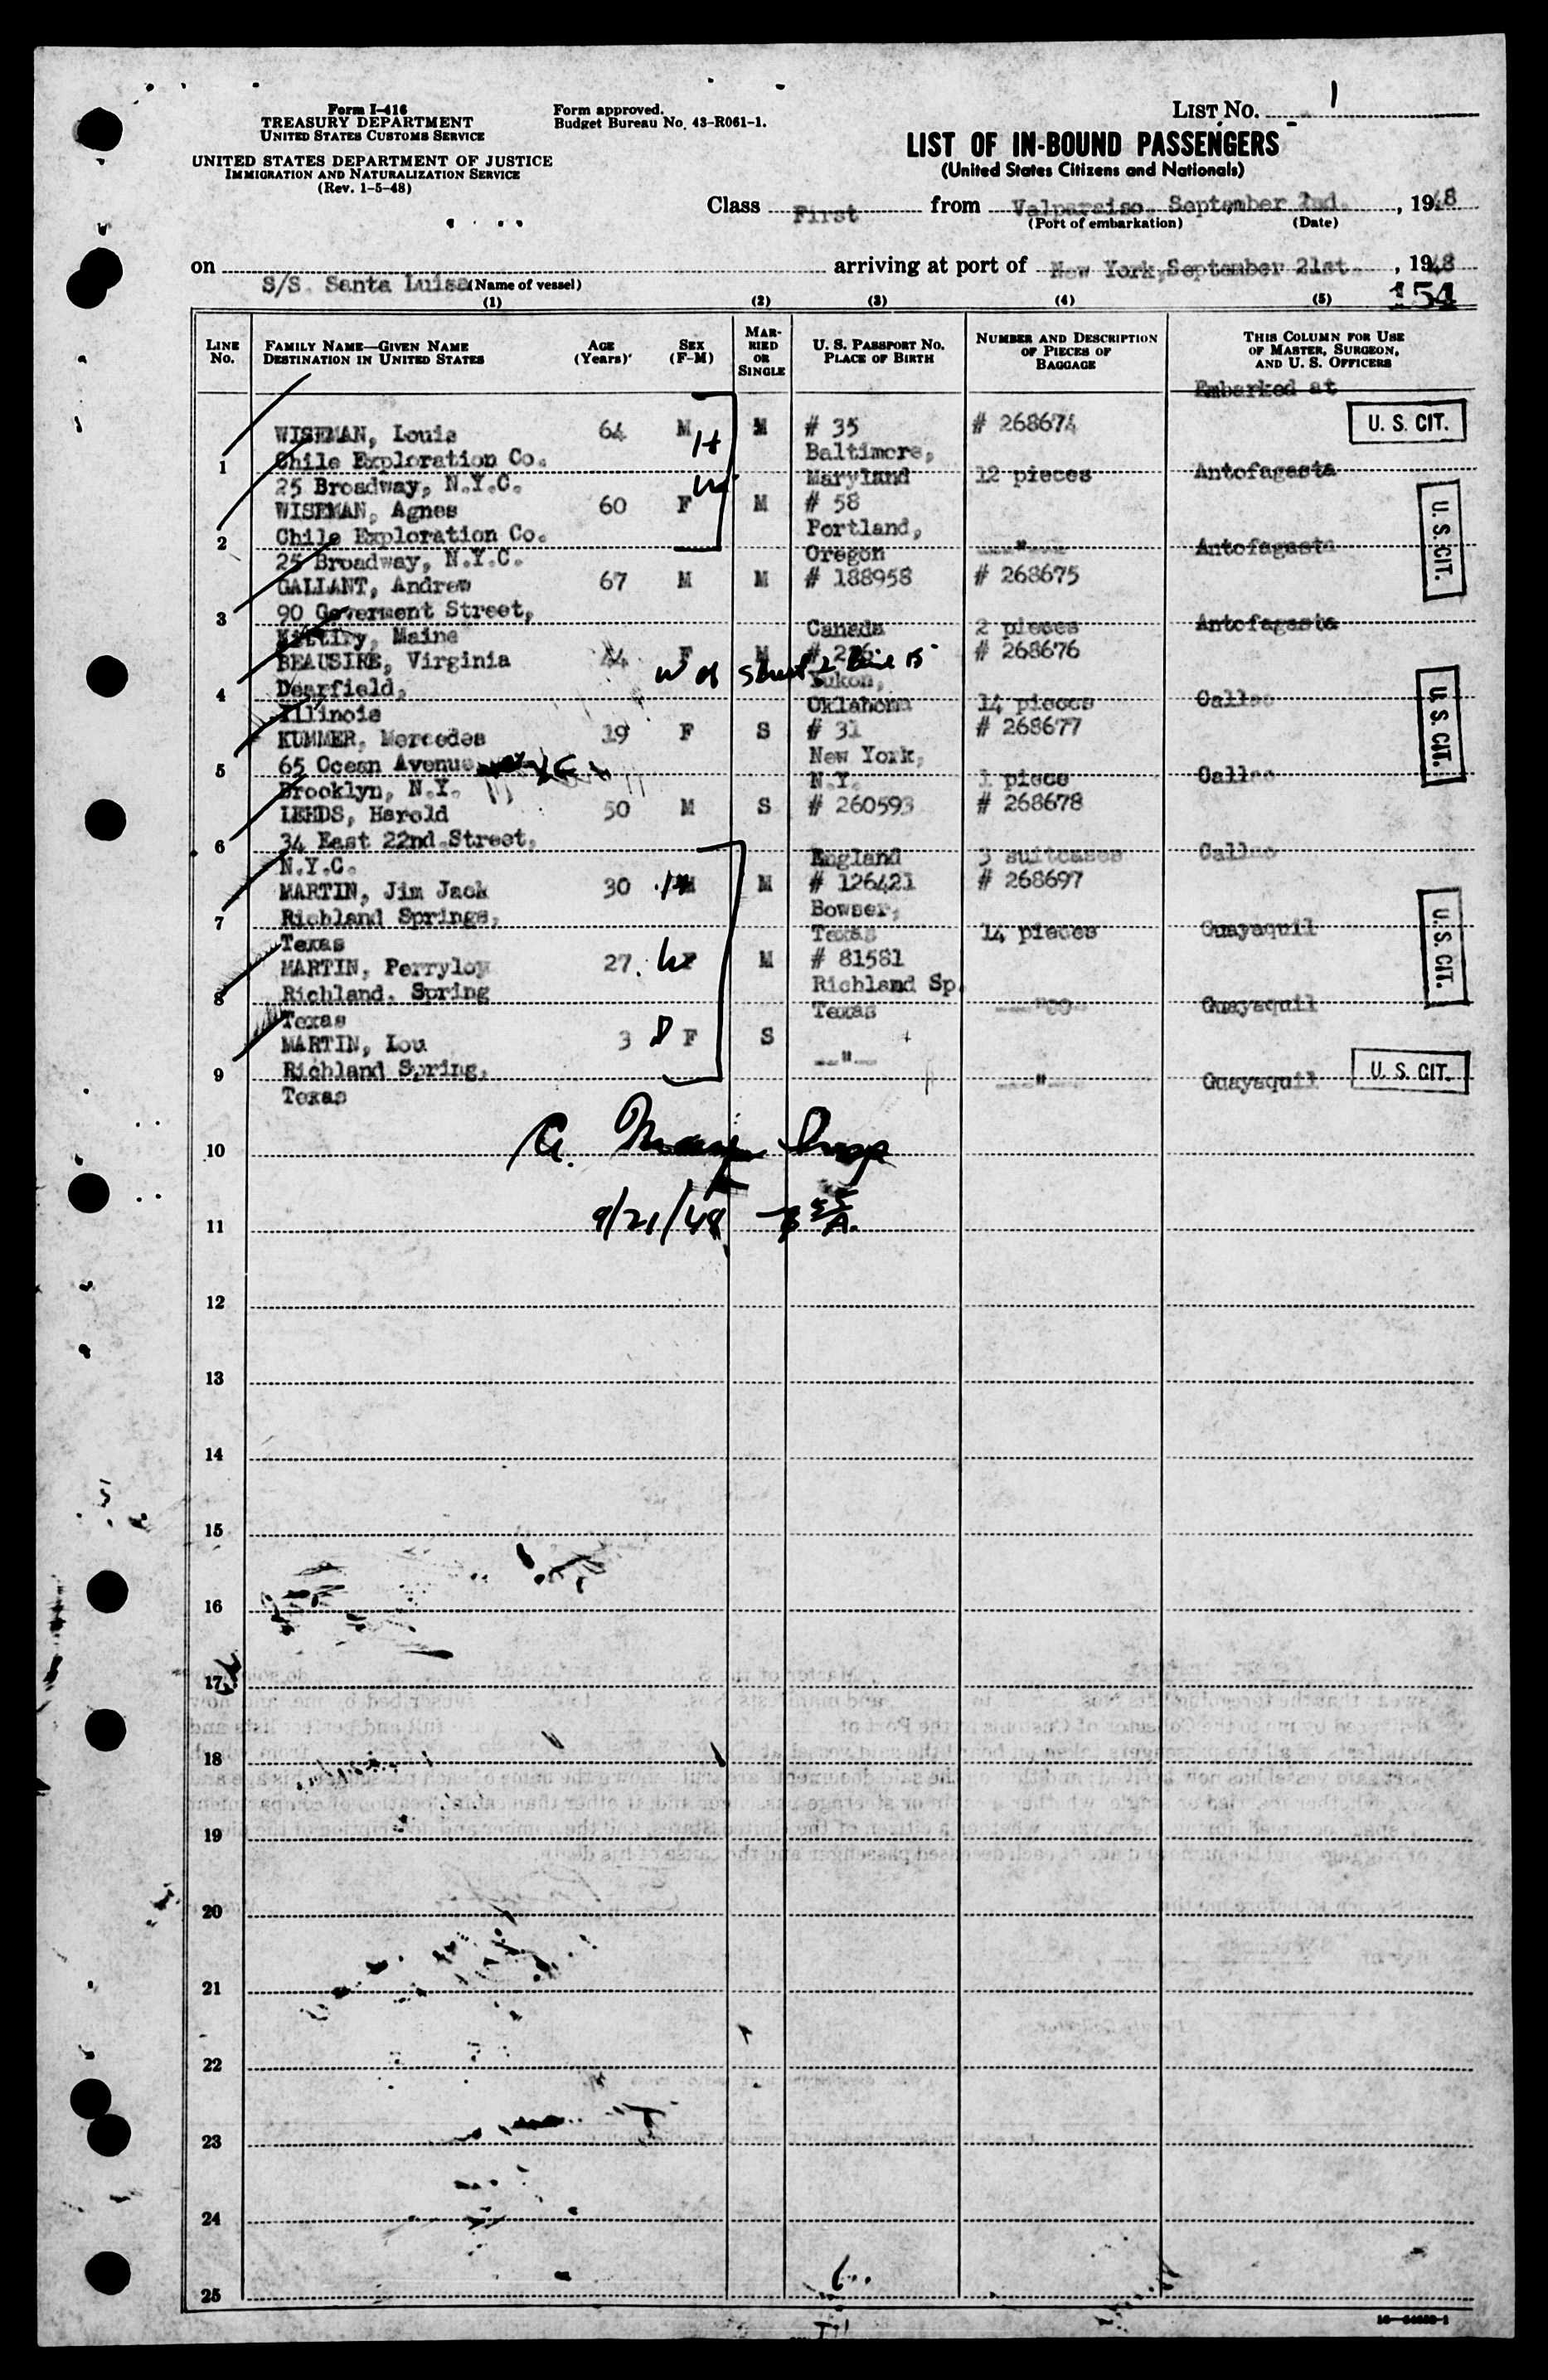 Form I-416
TREASURY DEPARTMENT
UNITED STATES CUSTOMS SERVICE
UNITED STATES DEPARTMENT OF JUSTICE
IMMIGRATION AND NATURALIZATION SERVICE
(Rev. 1-5-48)
Form approved.
Budget Bureau No. 43-R061-1.
LIST NO. 1
LIST OF IN-BOUND PASSENGERS
(United States Citizens and Nationals)
Class First from Valparaiso, September 2nd. , 1948
(Port of embarkation) (Date)
on S/S. Santa Luisa arriving at port of New York, September 21st. , 1948
(Name of vessel)
(1) (2) (3) (4) (5) 154
LINE No. FAMILY NAME—GIVEN NAME DESTINATION IN UNITED STATES AGE (Years) SEX (F-M) MARRIED OR SINGLE U. S. PASSPORT NO. PLACE OF BIRTH NUMBER AND DESCRIPTION OF PIECES OF BAGGAGE THIS COLUMN FOR USE OF MASTER, SURGEON, AND U. S. OFFICERS
Embarked at
WISEMAN, Louis 64 M H M # 35 # 268674 U. S. CIT.
Chile Exploration Co. Baltimore,
1 25 Broadway, N.Y.C. Maryland 12 pieces Antofagasta
WISEMAN, Agnes 60 F W M # 58 U. S. CIT.
Chile Exploration Co. Portland,
2 25 Broadway, N.Y.C. Oregon ---"--- Antofagasta
GALLANT, Andrew 67 M M # 188958 # 268675
3 90 Goverment Street, Canada 2 pieces Antofagasta
Kittiry, Maine
BEAUSIRE, Virginia 44 F M # 268676
W of sheet 2 line 15
Deerfield, Yukon,
4 Illinois Oklahoma 14 pieces Callao U. S. CIT.
KUMMER, Mercedes 19 F S # 31 # 268677
65 Ocean Avenue New York,
5 Brooklyn, N.Y. N.Y. 1 piece Callao
LEEDS, Harold 50 M S # 260593 # 268678
6 34 East 22nd Street, England 3 suitcases Callao
N.Y.C.
MARTIN, Jim Jack 30 H M M # 126421 # 268697
Richland Springs, Bowser,
7 Texas Texas 14 pieces Guayaquil U. S. CIT.
MARTIN, Perryloy 27 W F M # 81581
Richland. Spring Richland Sp.
8 Texas Texas Guayaquil
MARTIN, Lou 3 D F S
9 Richland Spring, ---"--- ---"--- Guayaquil U. S. CIT.
Texas
10
9/21/48
11
12
13
14
15
16
17
18
19
20
21
22
23
24
25